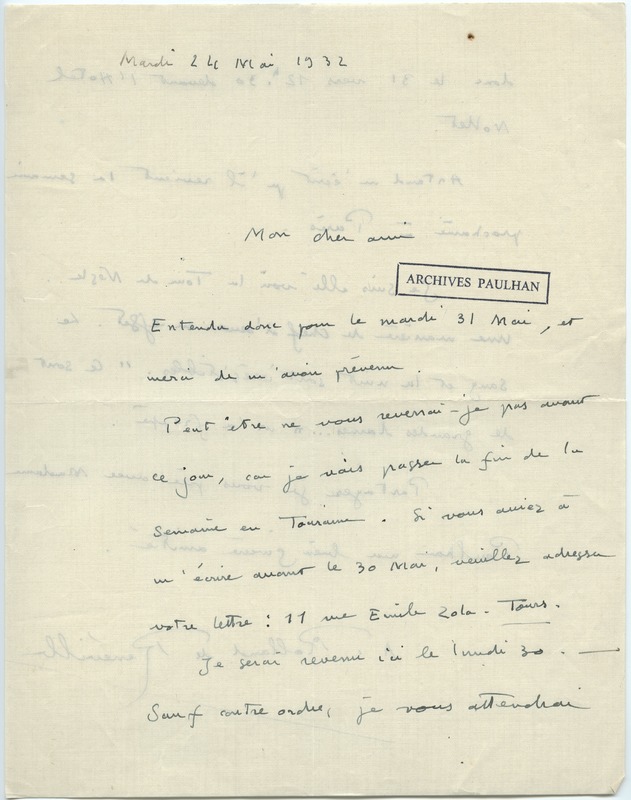 Mardi 24 Mai 1932
Mon cher ami
ARCHIVES PAULHAN
Entendu donc pour le mardi 31 Mai, et
merci de m'avoir prévenu.
Peut être ne vous reverrai-je pas avant
ce jour, car je vais passer la fin de la
semaine en Touraine. Si vous aviez à
m'écrire avant le 30 Mai, veuillez adresser
votre lettre : 11 rue Emile Zola - Tours.
Je serai revenu ici le lundi 30. —
Sauf contre ordre, je vous attendrai